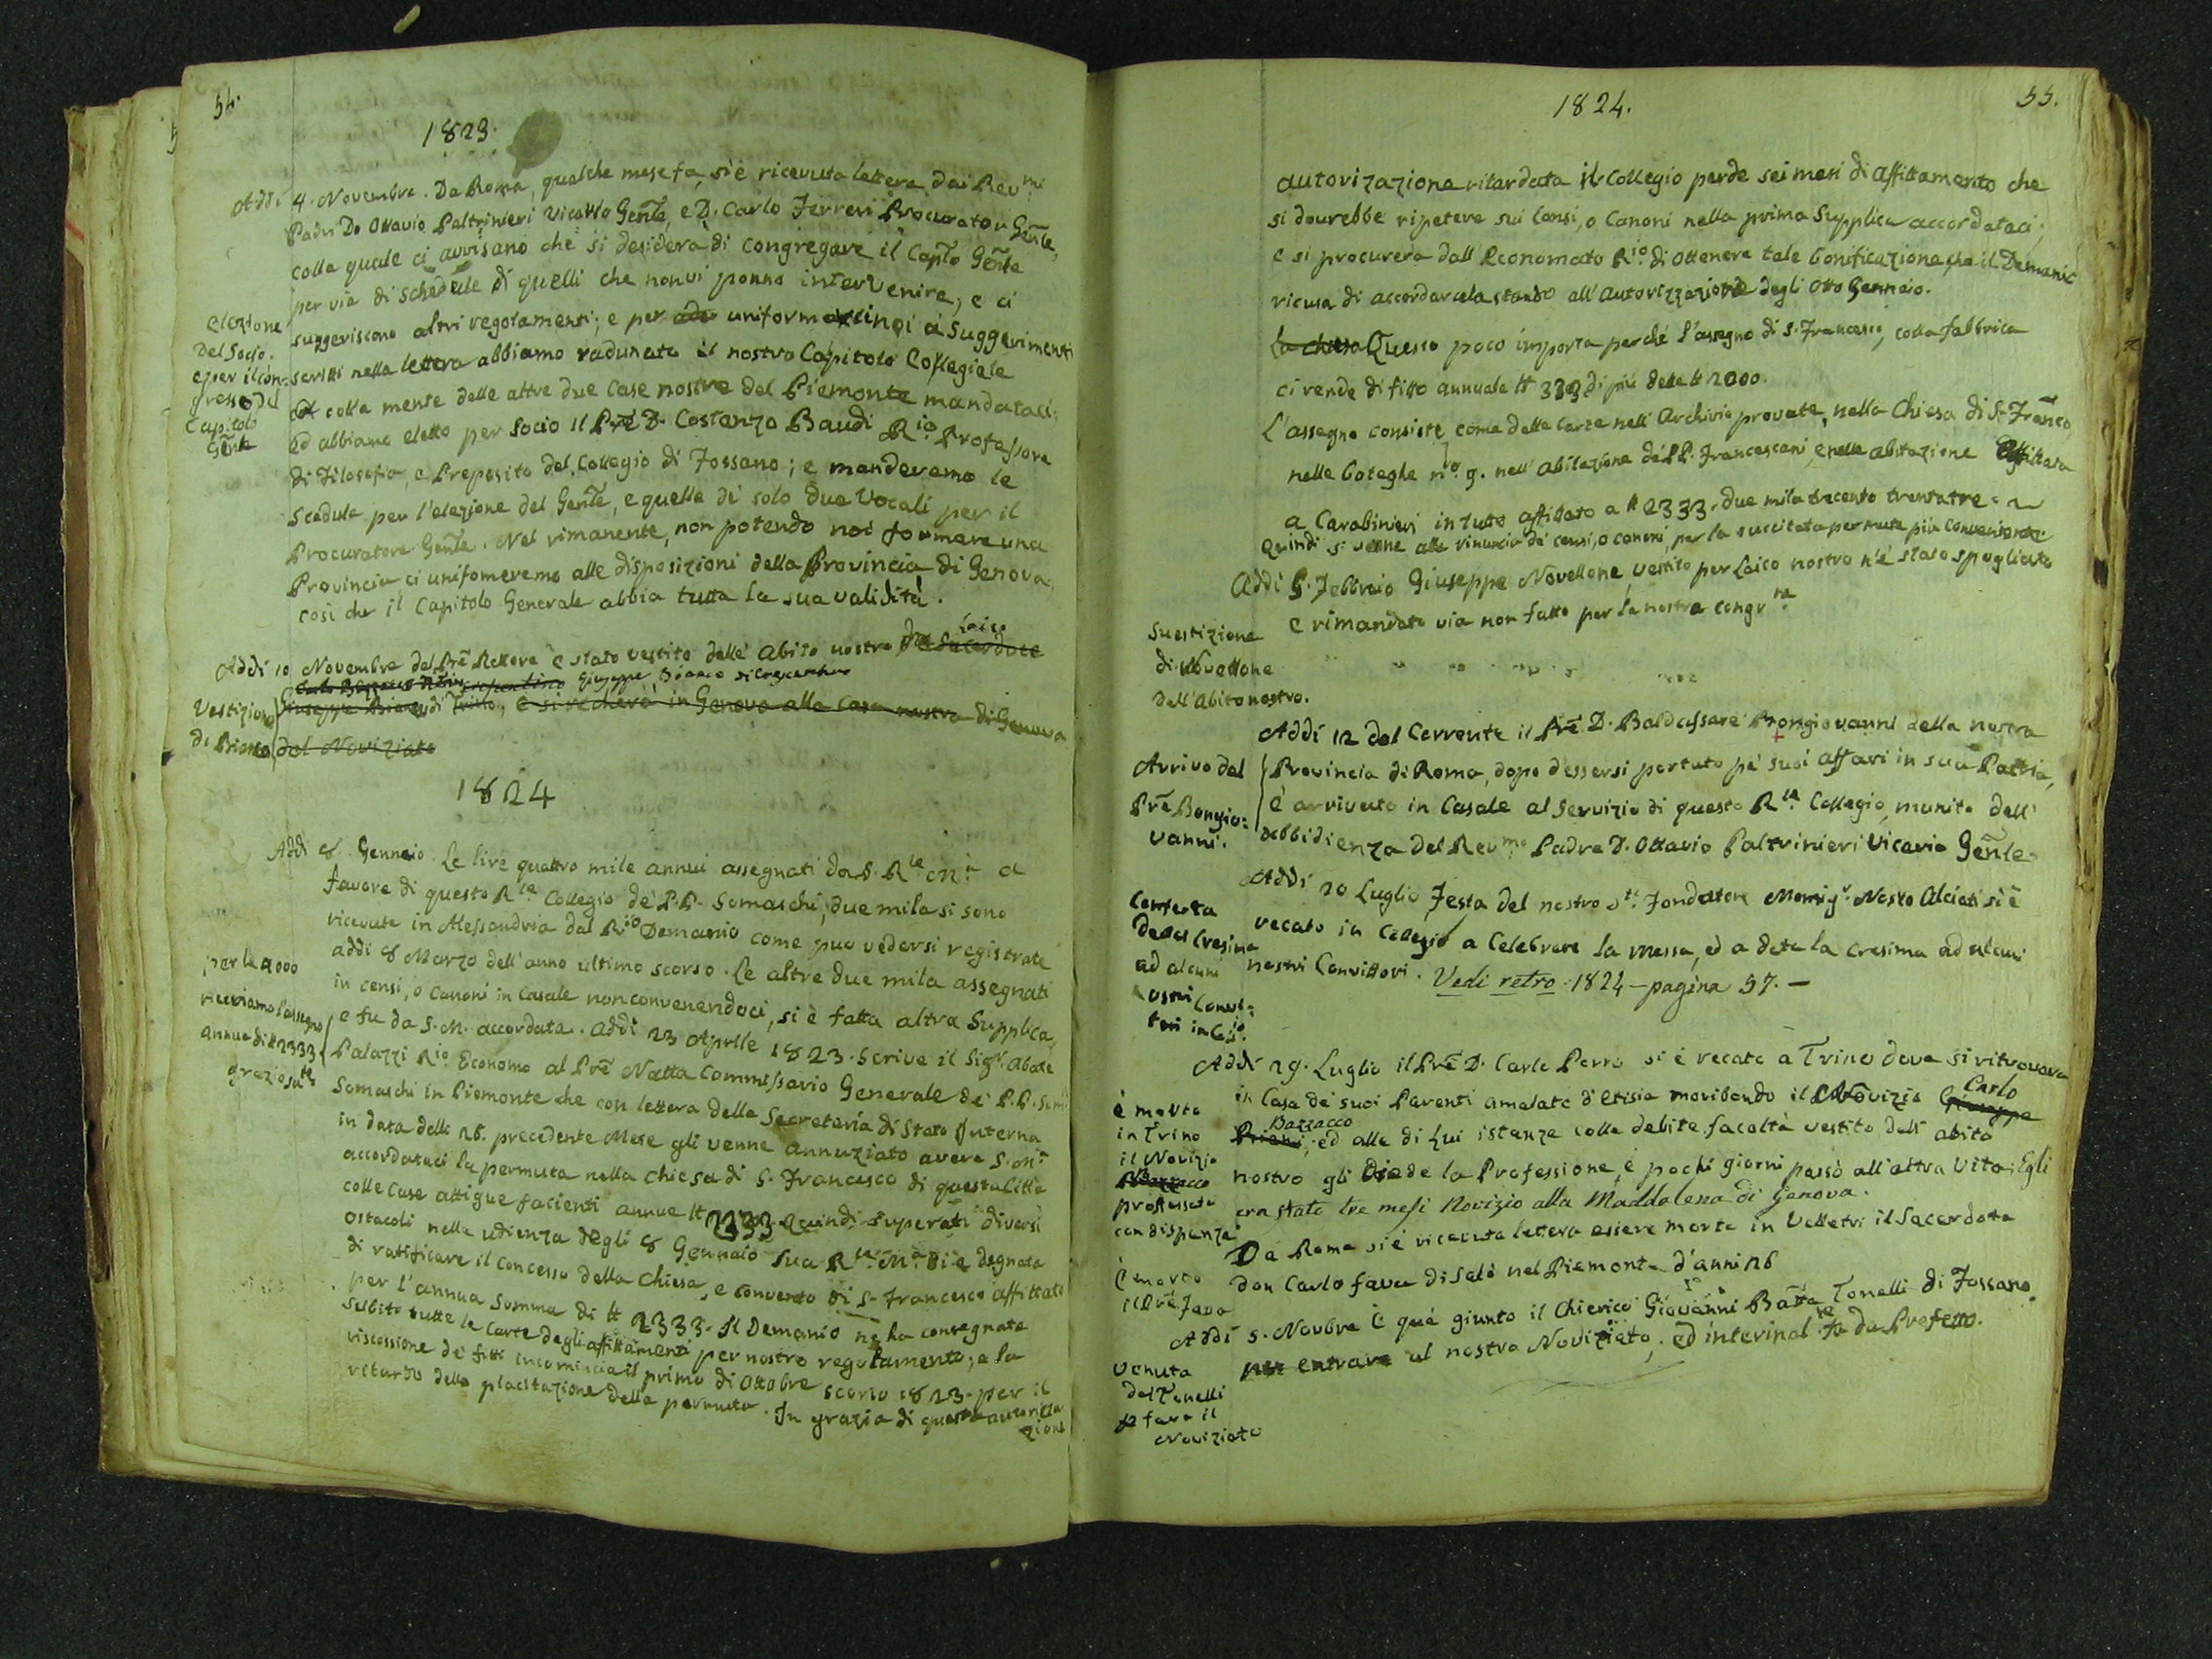 54.
1823.
Addi 4. Novembre. Da Roma, qualche mese fa, si è ricevuta lettera dai Revmi
Padri Dn Ottavio Paltrinieri Vicario Genle, e D. Carlo Ferreri Procurator Genle,
colla quale ci avvisano che si desidera di congregare il Caplo Genle
per via di schedule di quelli che non vi ponno intervenire, e ci
suggeriscono altri regolamenti; e per uniformarci noi ai suggerimenti
scritti nella lettera abbiamo radunato il nostro Capitolo Collegiale
colla mente delle altre due Case nostre del Piemonte mandataci;
ed abbiamo eletto per Socio il Pre D. Costanzo Baudi Rio Professore
di Filosofia, e Preposito del Collegio di Fossano; e manderemo le
Scedule per l'elezione del Genle, e quelle de' solo due Vocali per il
Procuratore Genle. Nel rimanente, non potendo noi formare una
Provincia ci unifomeremo alle disposizioni della Provincia di Genova,
così che il Capitolo Generale abbia tutta la sua validità.
Elezione
del Socio.
e per il con=
gresso del
Capitolo
Genle
Addi 10 Novembre dal Pre Rettore è stato vestito dello abito nostro da Sacerdote Laico
Carlo Bazzacco Crescentino Giuseppe Bianco di Crescentino
Giuseppe Bianco di Trino, e si recherà in Genova alla casa nostra di Genova
del Noviziato
Vestizione
di Bianco
1824
Addi 8 Gennaio. Le lire quattro mile annui assegnati da S. Rle Mtà a
favore di questo Rle Collegio de' P.P. Somaschi, due mila si sono
ricevute in Alessandria dal Rio Demanio come può vedersi registrate
addi 8 Marzo dell'anno ultimo scorso. Le altre due mila assegnati
in censi, o canoni in Casale non convenendoci, si è fatta altra Supplica,
e fu da S.M. accordata. Addi 23 Aprile 1823. Scrive il Sigr. Abate
Palazzi Rio Economo al Pre Natta Commissario Generale de' P.P.
Somaschi in Piemonte che con lettera della Secretaria di Stato Interna
in data delli 26. precedente Mese gli venne annuziato avere S. Mtà
accordataci la permuta nella chiesa di S. Francesco di questa Città
colle Case attigue facienti annue ₶ 2333. Quindi superati diversi
ostacoli nella udienza degli 8 Gennaio Sua Rle Mtà si è degnata
di ratificare il concesso della Chiesa, e convento di S. Francesco affittato
per l'annua Somma di ₶ 2333. Il Demanio ne ha consegnate
subito tutte le Carte degli affittamenti per nostro regolamento; e la
riscossione de' fitti incomincia il primo di Ottobre scorso 1823. per il
ritardo della placitazione della permuta. In grazia di questa autorizza
zione
per le 2000
riceviamo l'assegno
annuo di ₶ 2333
graziosate
55.
1824.
autorizazione ritardata il Collegio perde sei mesi di affittamento che
si dourebbe ripetere sui Censi, o Canoni nella prima Supplica accordataci;
e si procurerà dall'Economato Rio di ottenere tale bonificazione, che il Demanio
ricusa di accordarcela stando all'autorizzazione degli otto Gennaio.
La chiesa Questo poco importa perché l'assegno di S. Francesco, colla fabbrica
ci rende di fitto annuale ₶ 333 di più delle ₶ 2000.
L'assegno consiste come dalle Carte nell'Archivio provate, nella Chiesa di S. Franco,
nelle boteghe nro. 9. nell'abitazione de' P.P. Francescani, e nelle abitazione affittata
a Carabinieri in tutto affittato a ₶ 2333. due mila trecento trentatre.
Quindi si venne alla rinuncia de' censi, o canoni, per la succitata permuta più conveniente
Addi 5. Febbraio Giuseppe Novellone, vestito per Laico nostro n'è stato spogliato
e rimandato via non fatto per la nostra congrne
Suestizione
di Novellone
dell'Abito nostro.
Addi 12 del Corrente il Pre D. Baldassare Bongiovanni della nostra
Provincia di Roma, dopo d'essersi portato pe' suoi affari in sua Patria,
è arrivato in Casale al servizio di questo Rle Collegio, munito dell'
obbidienza del Revmo Padre D. Ottavio Paltrinieri Vicario Genle.
Arrivo del
Pre Bongio=
vanni.
Addi 20 Luglio, Festa del nostro Sto Fondatore Monsigr. Nostro Alciati si è
recato in Collegio a Celebrare la Messa, ed a data la Cresima ad alcuni
nostri Convittori. Vedi retro: 1824 — pagina 57. —
Conferta
della Cresima
ad alcuni
nostri Convit=
tori in Collio.
Addi 29. Luglio il Pre D. Carlo Perro si è recato a Trino dove si ritrovava
in Casa de' suoi Parenti amalato d'etisia moribondo il Novizio Giuseppe Carlo
Bazzacco, ed alla di Lui istanze colle debite facoltà vestito dell'abito
nostro gli diede la Professione, e pochi giorni passò all'altra Vita; Egli
era stato tre mesi Novizio alla Maddalena di Genova.
è morto
in Trino
il Novizio
Bazzacco
professato
con dispenza
Da Roma si è ricevuta lettera essere morto in Velletri il Sacerdote
don Carlo Fava di Salò nel Piemonte d'anni 26
è morto
il Pre Fava
Addi 5. Novbre è quà giunto il Chierico Giovanni Batta Tonelli di Fossano.
per entrare al nostro Noviziato, ed interinalte fa da Prefetto.
Venuta
del Tonelli
p fare il
Noviziato